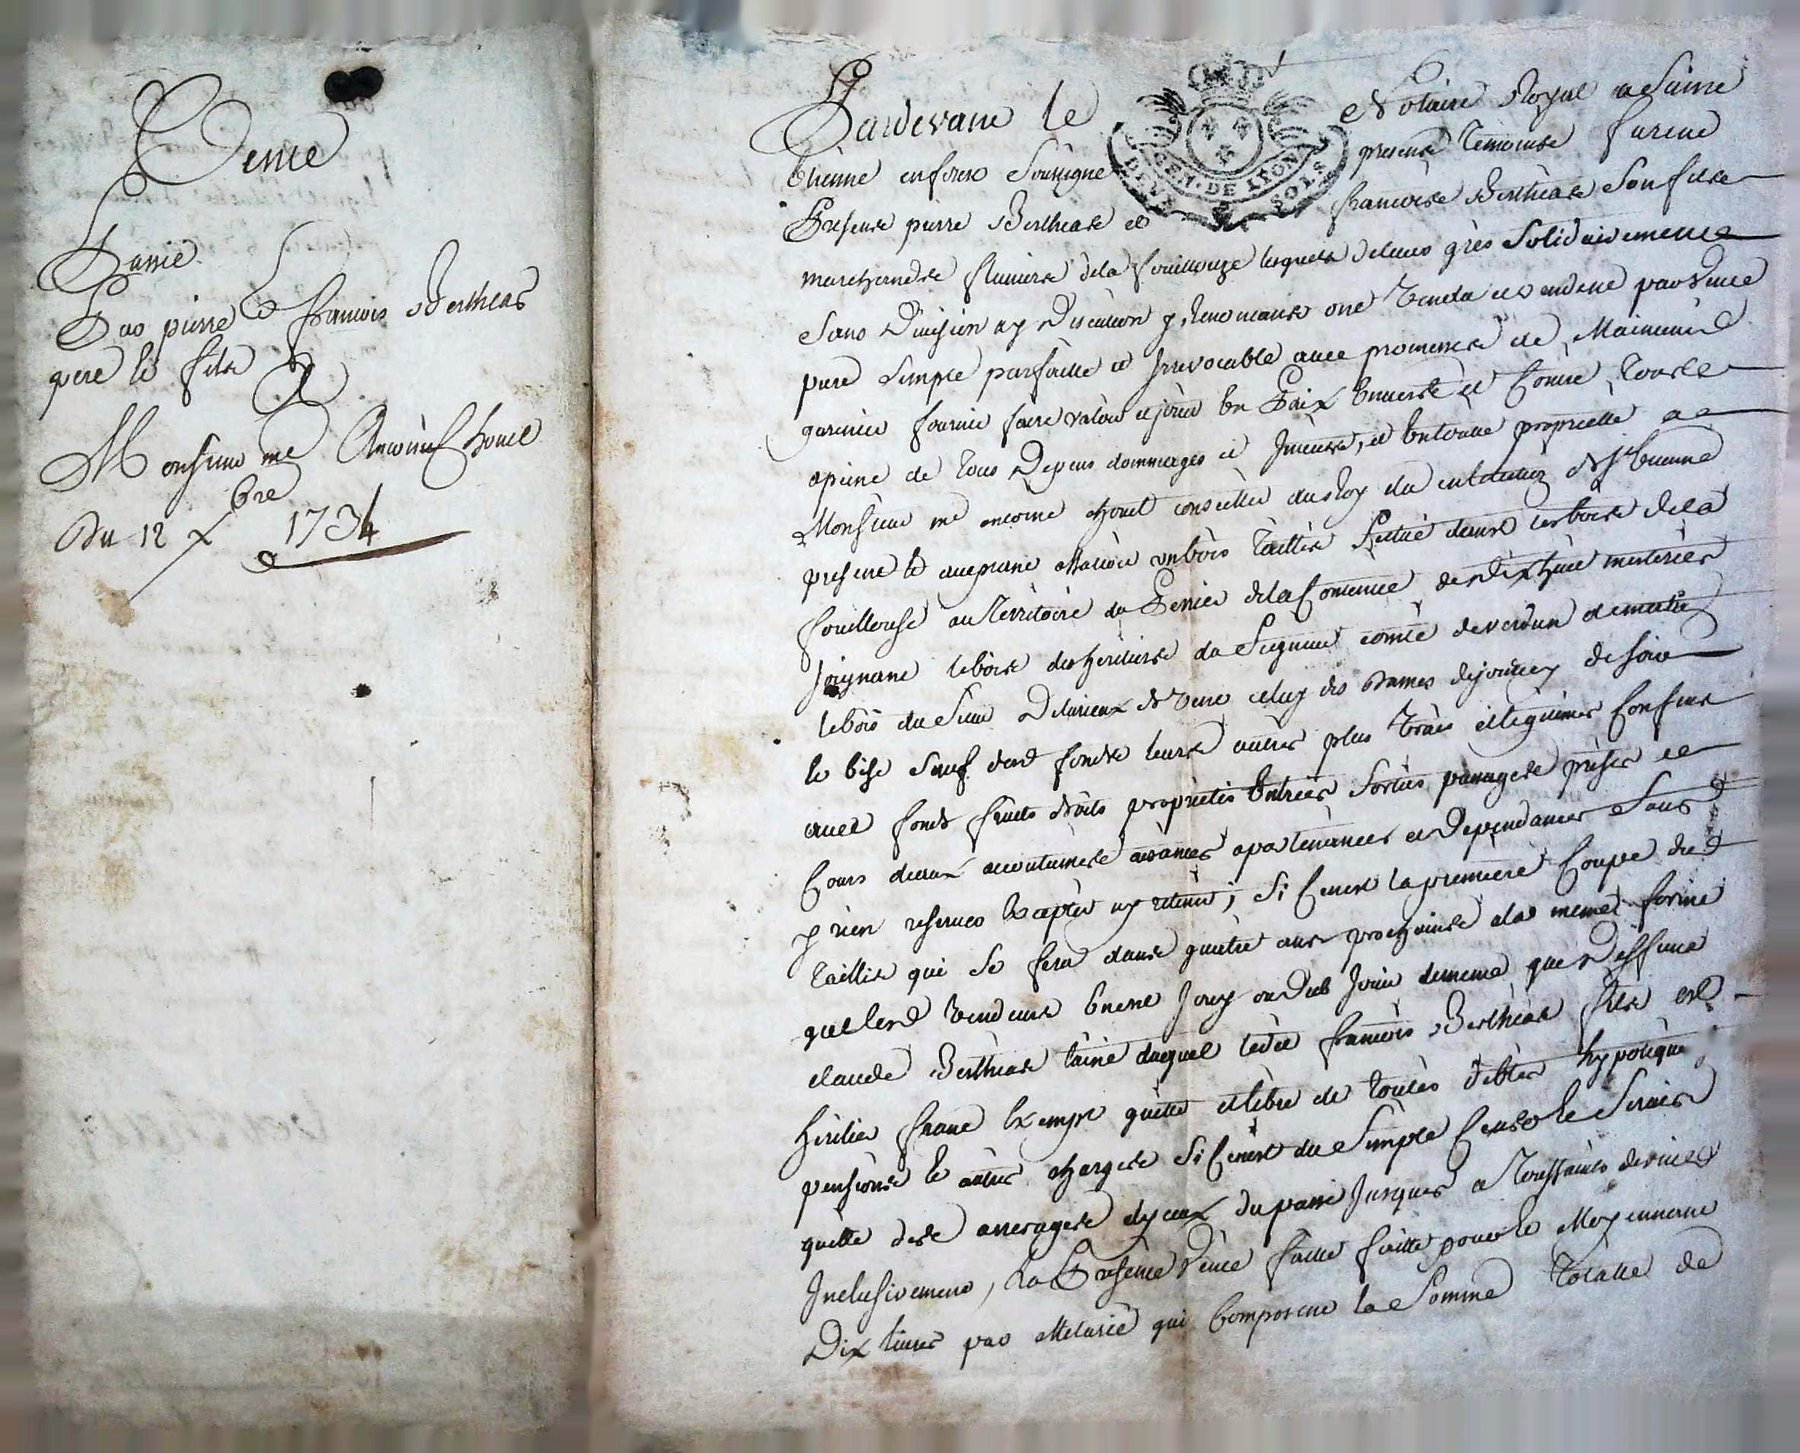 Vente
Passé
Par pierre et francois Bertheas
pere & fils
A
Monsieur me Antoine Chovet
Du 12 xbre 1734
GEN · DE LYON
DEUX SOLS
Pardevant le Notaire Royal a Saint
Etienne en forez Soussigné presents temoins furent
Presents pierre Bertheas et francois Bertheas son fils
marchands de la fouillouze lesquels de leurs grès Solidairement
Sans Division ny Discution y renonceants ont vendu et vendent par vente
pure simple parfaitte et Irrevocable avec promesse de Maintenir
garentir fournir faire valoir et jouir En Paix Envers et Contre Tous a
peine de tous Depens dommages et Interets, et En toutte proprietté a
Monsieur me antoine chovet conseiller du Roy en L'election de St Etienne
present et acceptant un bois taillis Scitué dans les bois de la
fouillouse au Territoire du de la Contenue de Dix huit meterées
Joignant le bois des heritiers du Seigneur comte de verdun de matin
le bois du Sieur de vent celuy des Dames de jourcey de soir
et bise Sauf dud fonds leurs autres plus vrais et legitimes Confins
avec fonds fruits droits proprietés Entrées Sorties passages prises et
Cours d'eaux accoutumés aisances apartenances et Dependances Sans
y rien reserver Excepter ny retenir, Si Cenest la premiere Coupe dud
Taillis qui se fera dans quatre ans prochains a la meme forme
que lesd vendeurs Enont Jouy ou dub Jouir dememe que Deffunt
claude Bertheas l'ainé duquel ledit francois Bertheas fils est
heritier franc Exempt quitte et libre de toutes debtes hypoteques
pensions et autres charges Si Cenest du Simple Cens et Servis
quitte des arrerages dyceux du passé Jusques a Toussaints dernier
Inclusivement, La Presente Vente faitte pour et Moyennant
Dix livres par Meterée qui Composent la Somme Totalle de